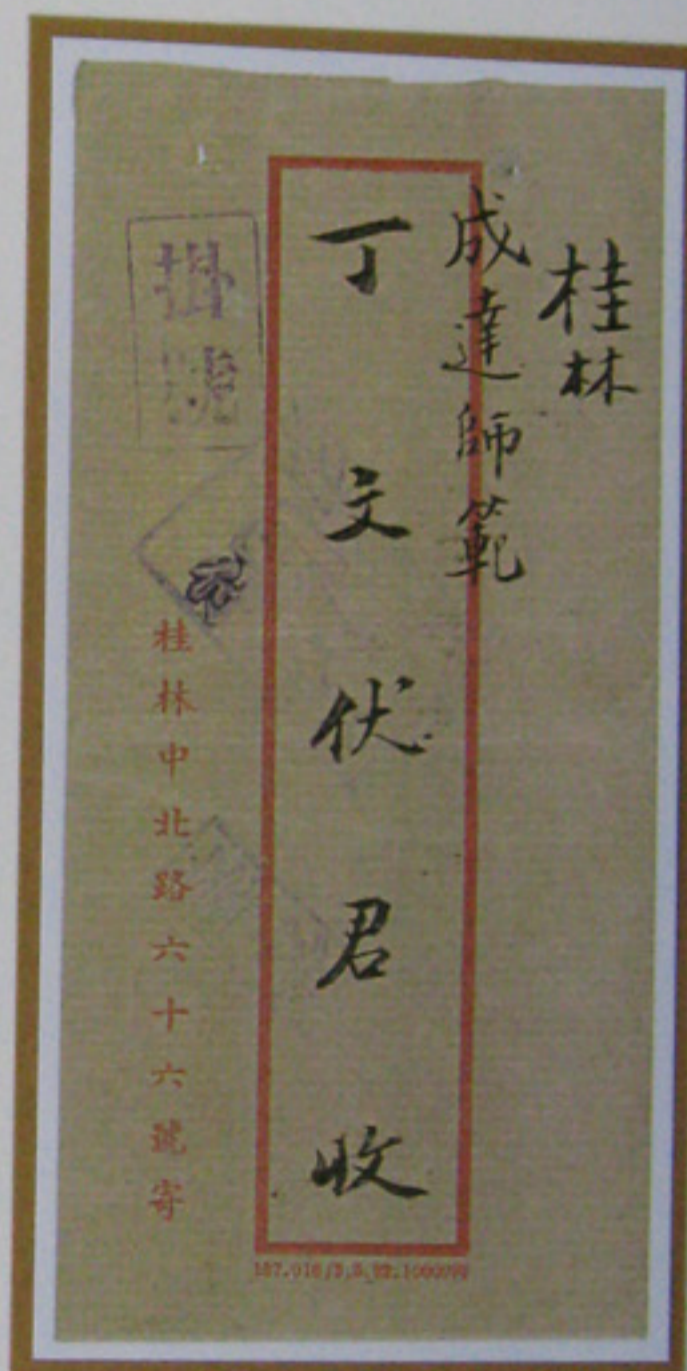 桂林
成達師範
丁文伏君收
掛號
桂林中北路六十六號寄